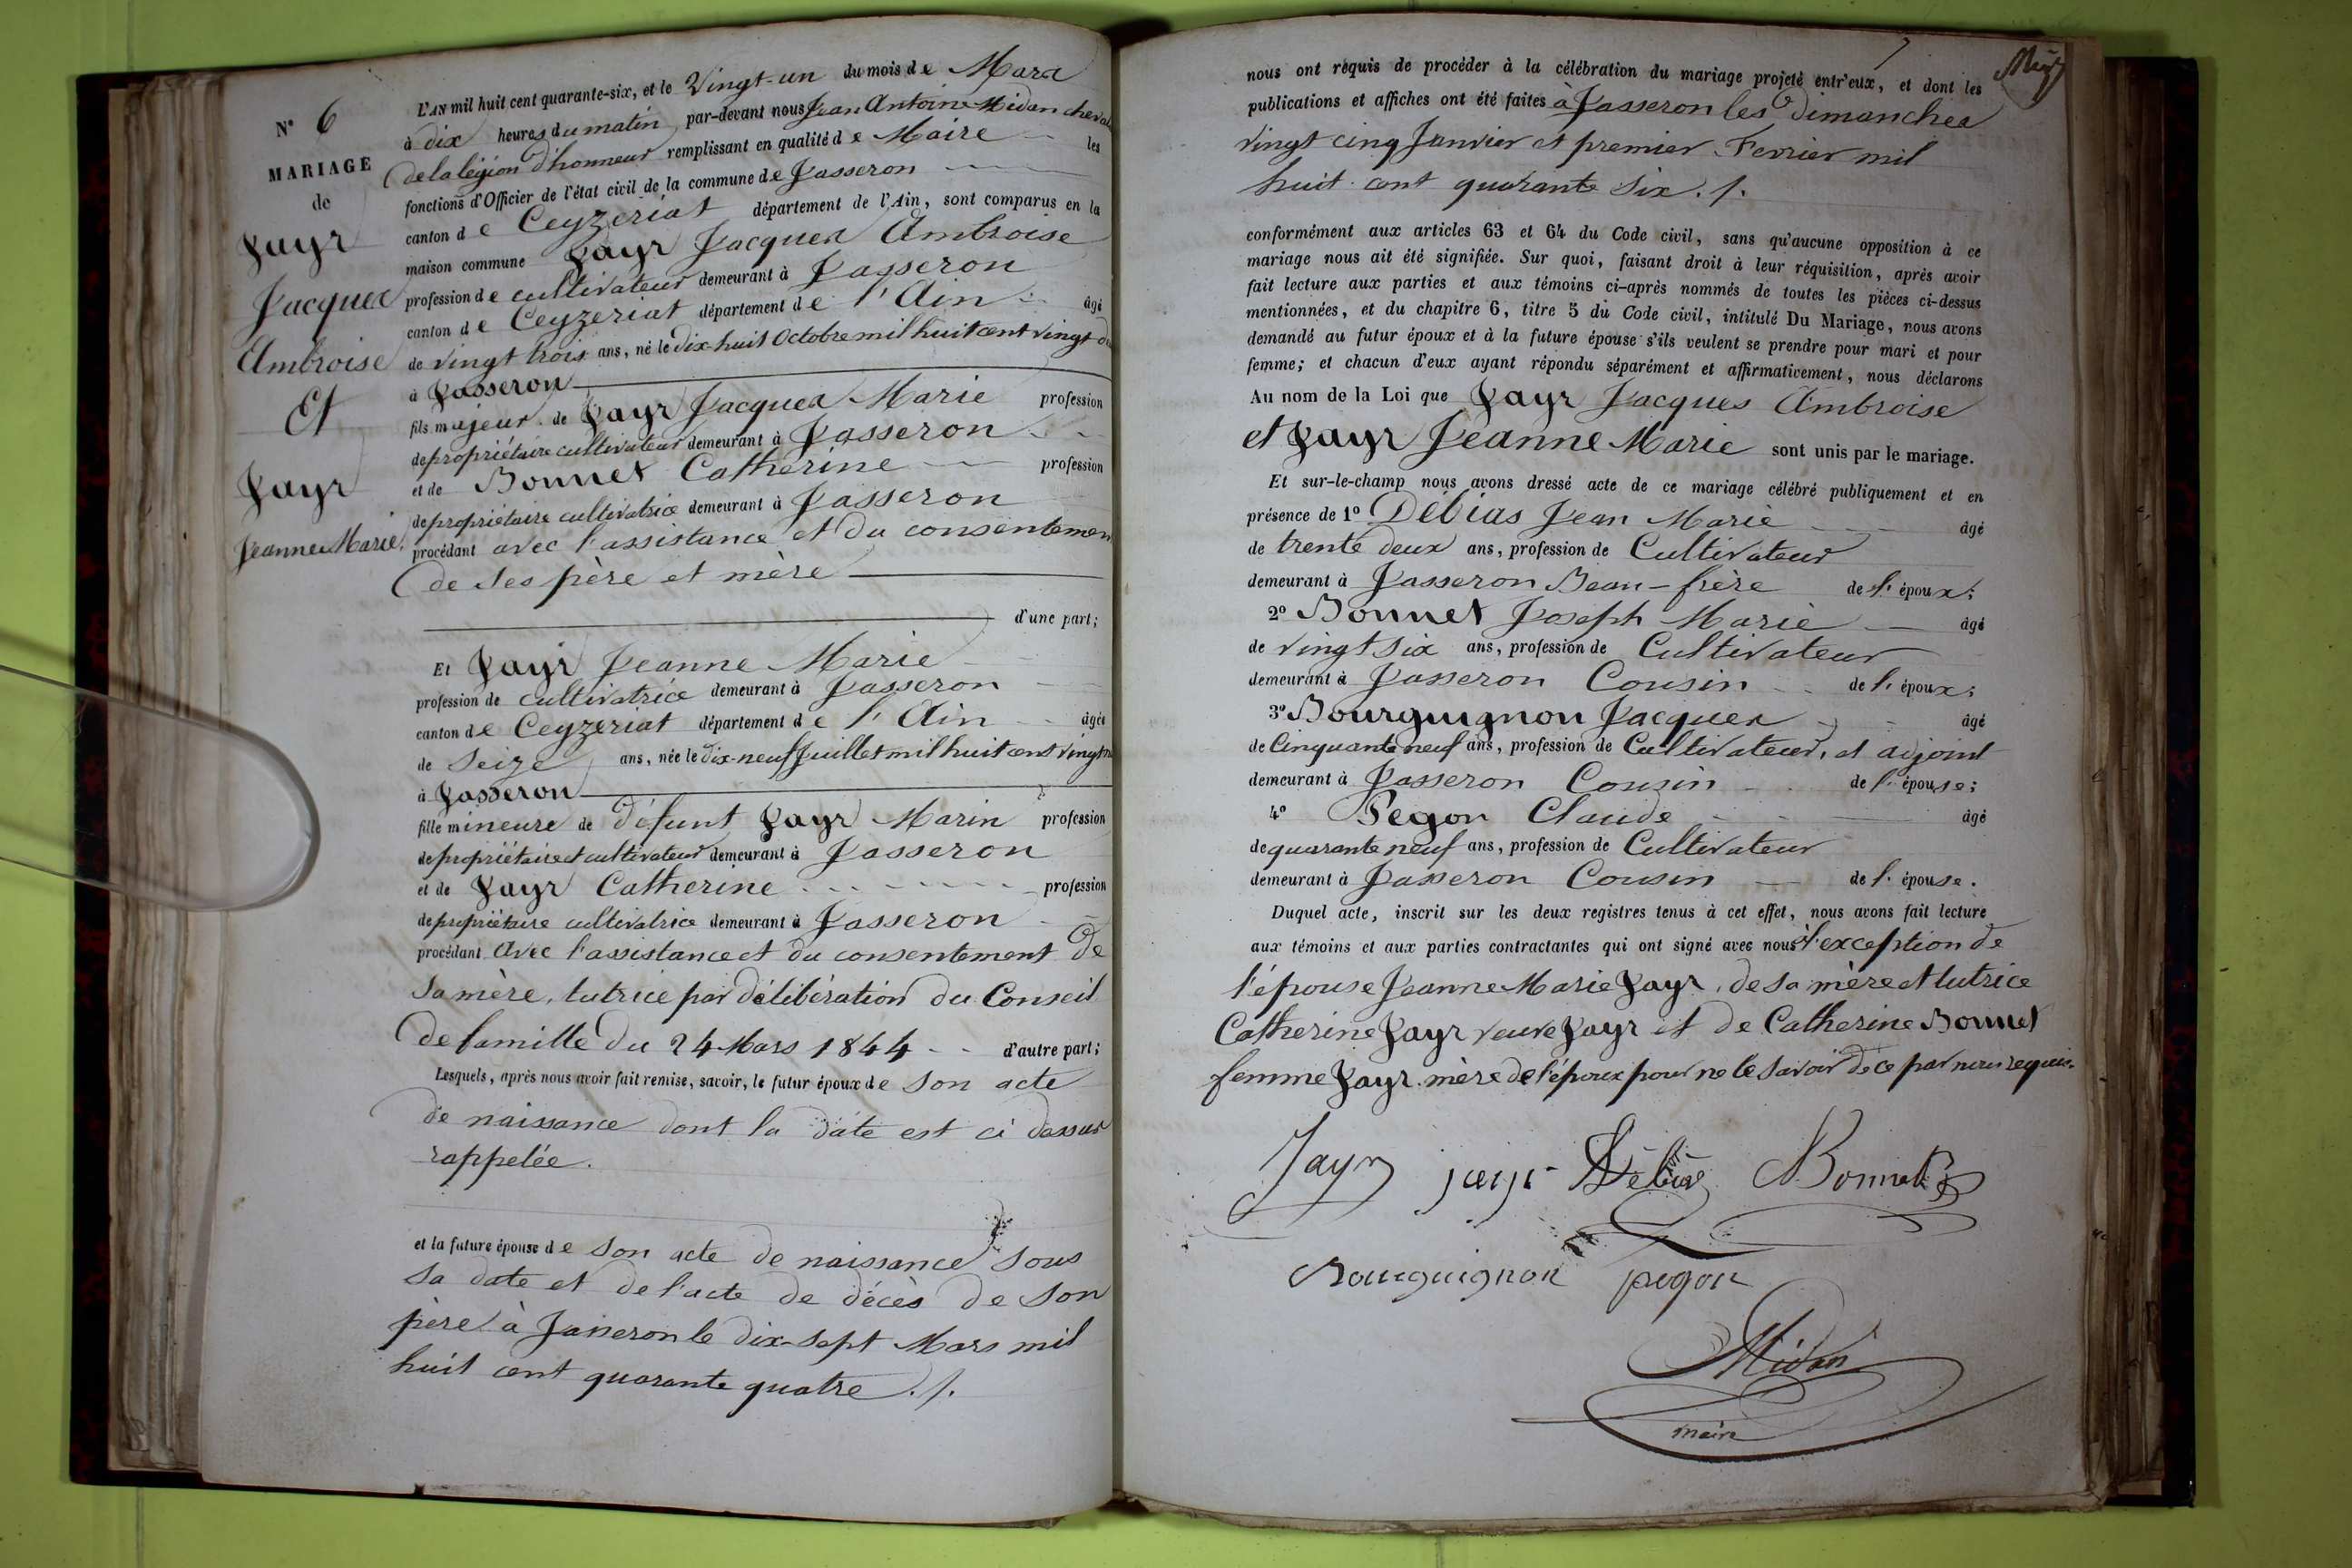 N° 6
MARIAGE
de
Jayr
Jacques
Ambroise
Et
Jayr
Jeanne Marie.
L'AN mil huit cent quarante-six, et le Vingt-un du mois de Mars
à dix heures du matin par-devant nous Jean Antoine Midan
de la légion d'honneur remplissant en qualité de Maire les
fonctions d'Officier de l'état civil de la commune de Jasseron
canton de Ceyzeriat département de l'Ain, sont comparus en la
maison commune Jayr Jacques Ambroise
profession de cultivateur demeurant à Jasseron
canton de Ceyzeriat département de l'Ain âgé
de vingt trois ans, né le dix-huit Octobre mil huit cent vingt
à Jasseron
fils majeur de Jayr Jacques Marie profession
de propriétaire cultivateur demeurant à Jasseron
et de Bonnet Catherine profession
de propriétaire cultivatrice demeurant à Jasseron
procédant avec l'assistance et du consentemen
de ses père et mère
d'une part;
Et Jayr Jeanne Marie
profession de cultivatrice demeurant à Jasseron
canton de Ceyzeriat département de l'Ain âgée
de Seize ans, née le dix-neuf Juillet mil huit cent vingt
à Jasseron
fille mineure de défunt Jayr Marin profession
de propriétaire et cultivateur demeurant à Jasseron
et de Jayr Catherine profession
de propriétaire cultivatrice demeurant à Jasseron
procédant avec l'assistance et du consentement de
sa mère, tutrice par délibération du Conseil
de famille du 24 Mars 1844 d'autre part;
Lesquels, après nous avoir fait remise, savoir, le futur époux de son acte
de naissance dont la date est ci dessus
rappelée.
et la future épouse de son acte de naissance sous
sa date et de l'acte de décès de son
père à Jasseron le dix-sept Mars mil
huit cent quarante quatre ./.
7
nous ont requis de procéder à la célébration du mariage projeté entr'eux, et dont les
publications et affiches ont été faites à Jasseron les dimanches
vingt cinq Janvier et premier Fevrier mil
huit cent quarante six ./.
conformément aux articles 63 et 64 du Code civil, sans qu'aucune opposition à ce
mariage nous ait été signifiée. Sur quoi, faisant droit à leur réquisition, après avoir
fait lecture aux parties et aux témoins ci-après nommés de toutes les pièces ci-dessus
mentionnées, et du chapitre 6, titre 5 du Code civil, intitulé Du Mariage, nous avons
demandé au futur époux et à la future épouse s'ils veulent se prendre pour mari et pour
femme; et chacun d'eux ayant répondu séparément et affirmativement, nous déclarons
Au nom de la Loi que Jayr Jacques Ambroise
et Jayr Jeanne Marie sont unis par le mariage.
Et sur-le-champ nous avons dressé acte de ce mariage célébré publiquement et en
présence de 1° Débias Jean Marie âgé
de trente deux ans, profession de Cultivateur
demeurant à Jasseron Beau-frère de l'époux;
2° Bonnet Joseph Marie âgé
de vingt six ans, profession de Cultivateur
demeurant à Jasseron Cousin de l'époux;
3° Bourguignon Jacques âgé
de Cinquante neuf ans, profession de Cultivateur, et adjoint
demeurant à Jasseron Cousin de l'épouse;
4° Pegon Claude âgé
de quarante neuf ans, profession de Cultivateur
demeurant à Jasseron Cousin de l'épouse.
Duquel acte, inscrit sur les deux registres tenus à cet effet, nous avons fait lecture
aux témoins et aux parties contractantes qui ont signé avec nous à l'exception de
l'épouse Jeanne Marie Jayr, de sa mère et tutrice
Catherine Jayr veuve Jayr et de Catherine Bonnet
femme Jayr mère de l'époux pour ne le savoir de ce par nous requis.
Jayr jayr Débias Bonnet
Bourguignon pegon
Midan
maire